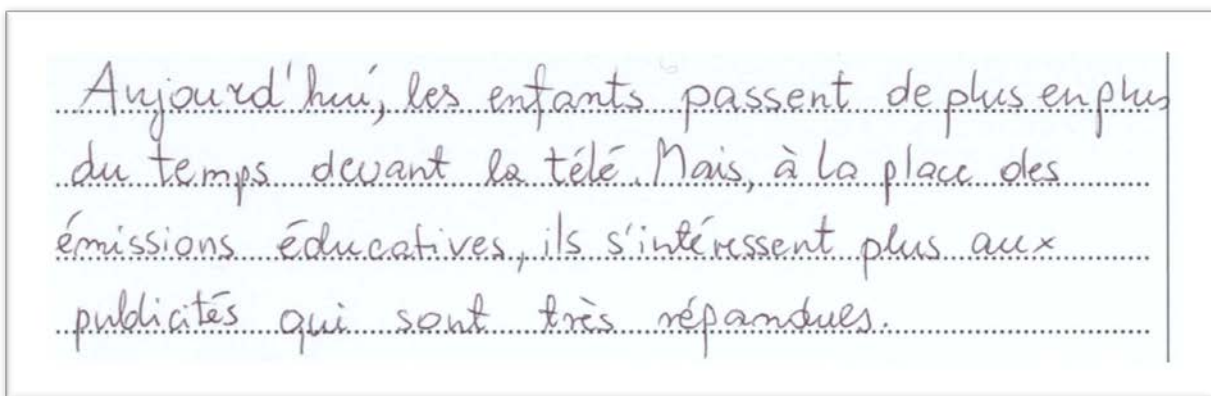 Aujourd'hui, les enfants passent de plus en plus
du temps devant la télé. Mais, à la place des
émissions éducatives, ils s'intéressent plus aux
publicités qui sont très répandues.